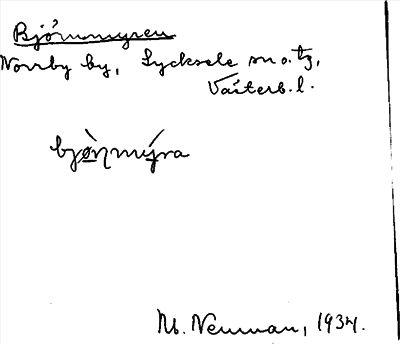 Björnmyren
Norrby by, Lycksele sn o. tg,
Västerb. l.
bjø̀ṇmý̱ra
M. Neuman, 1934.